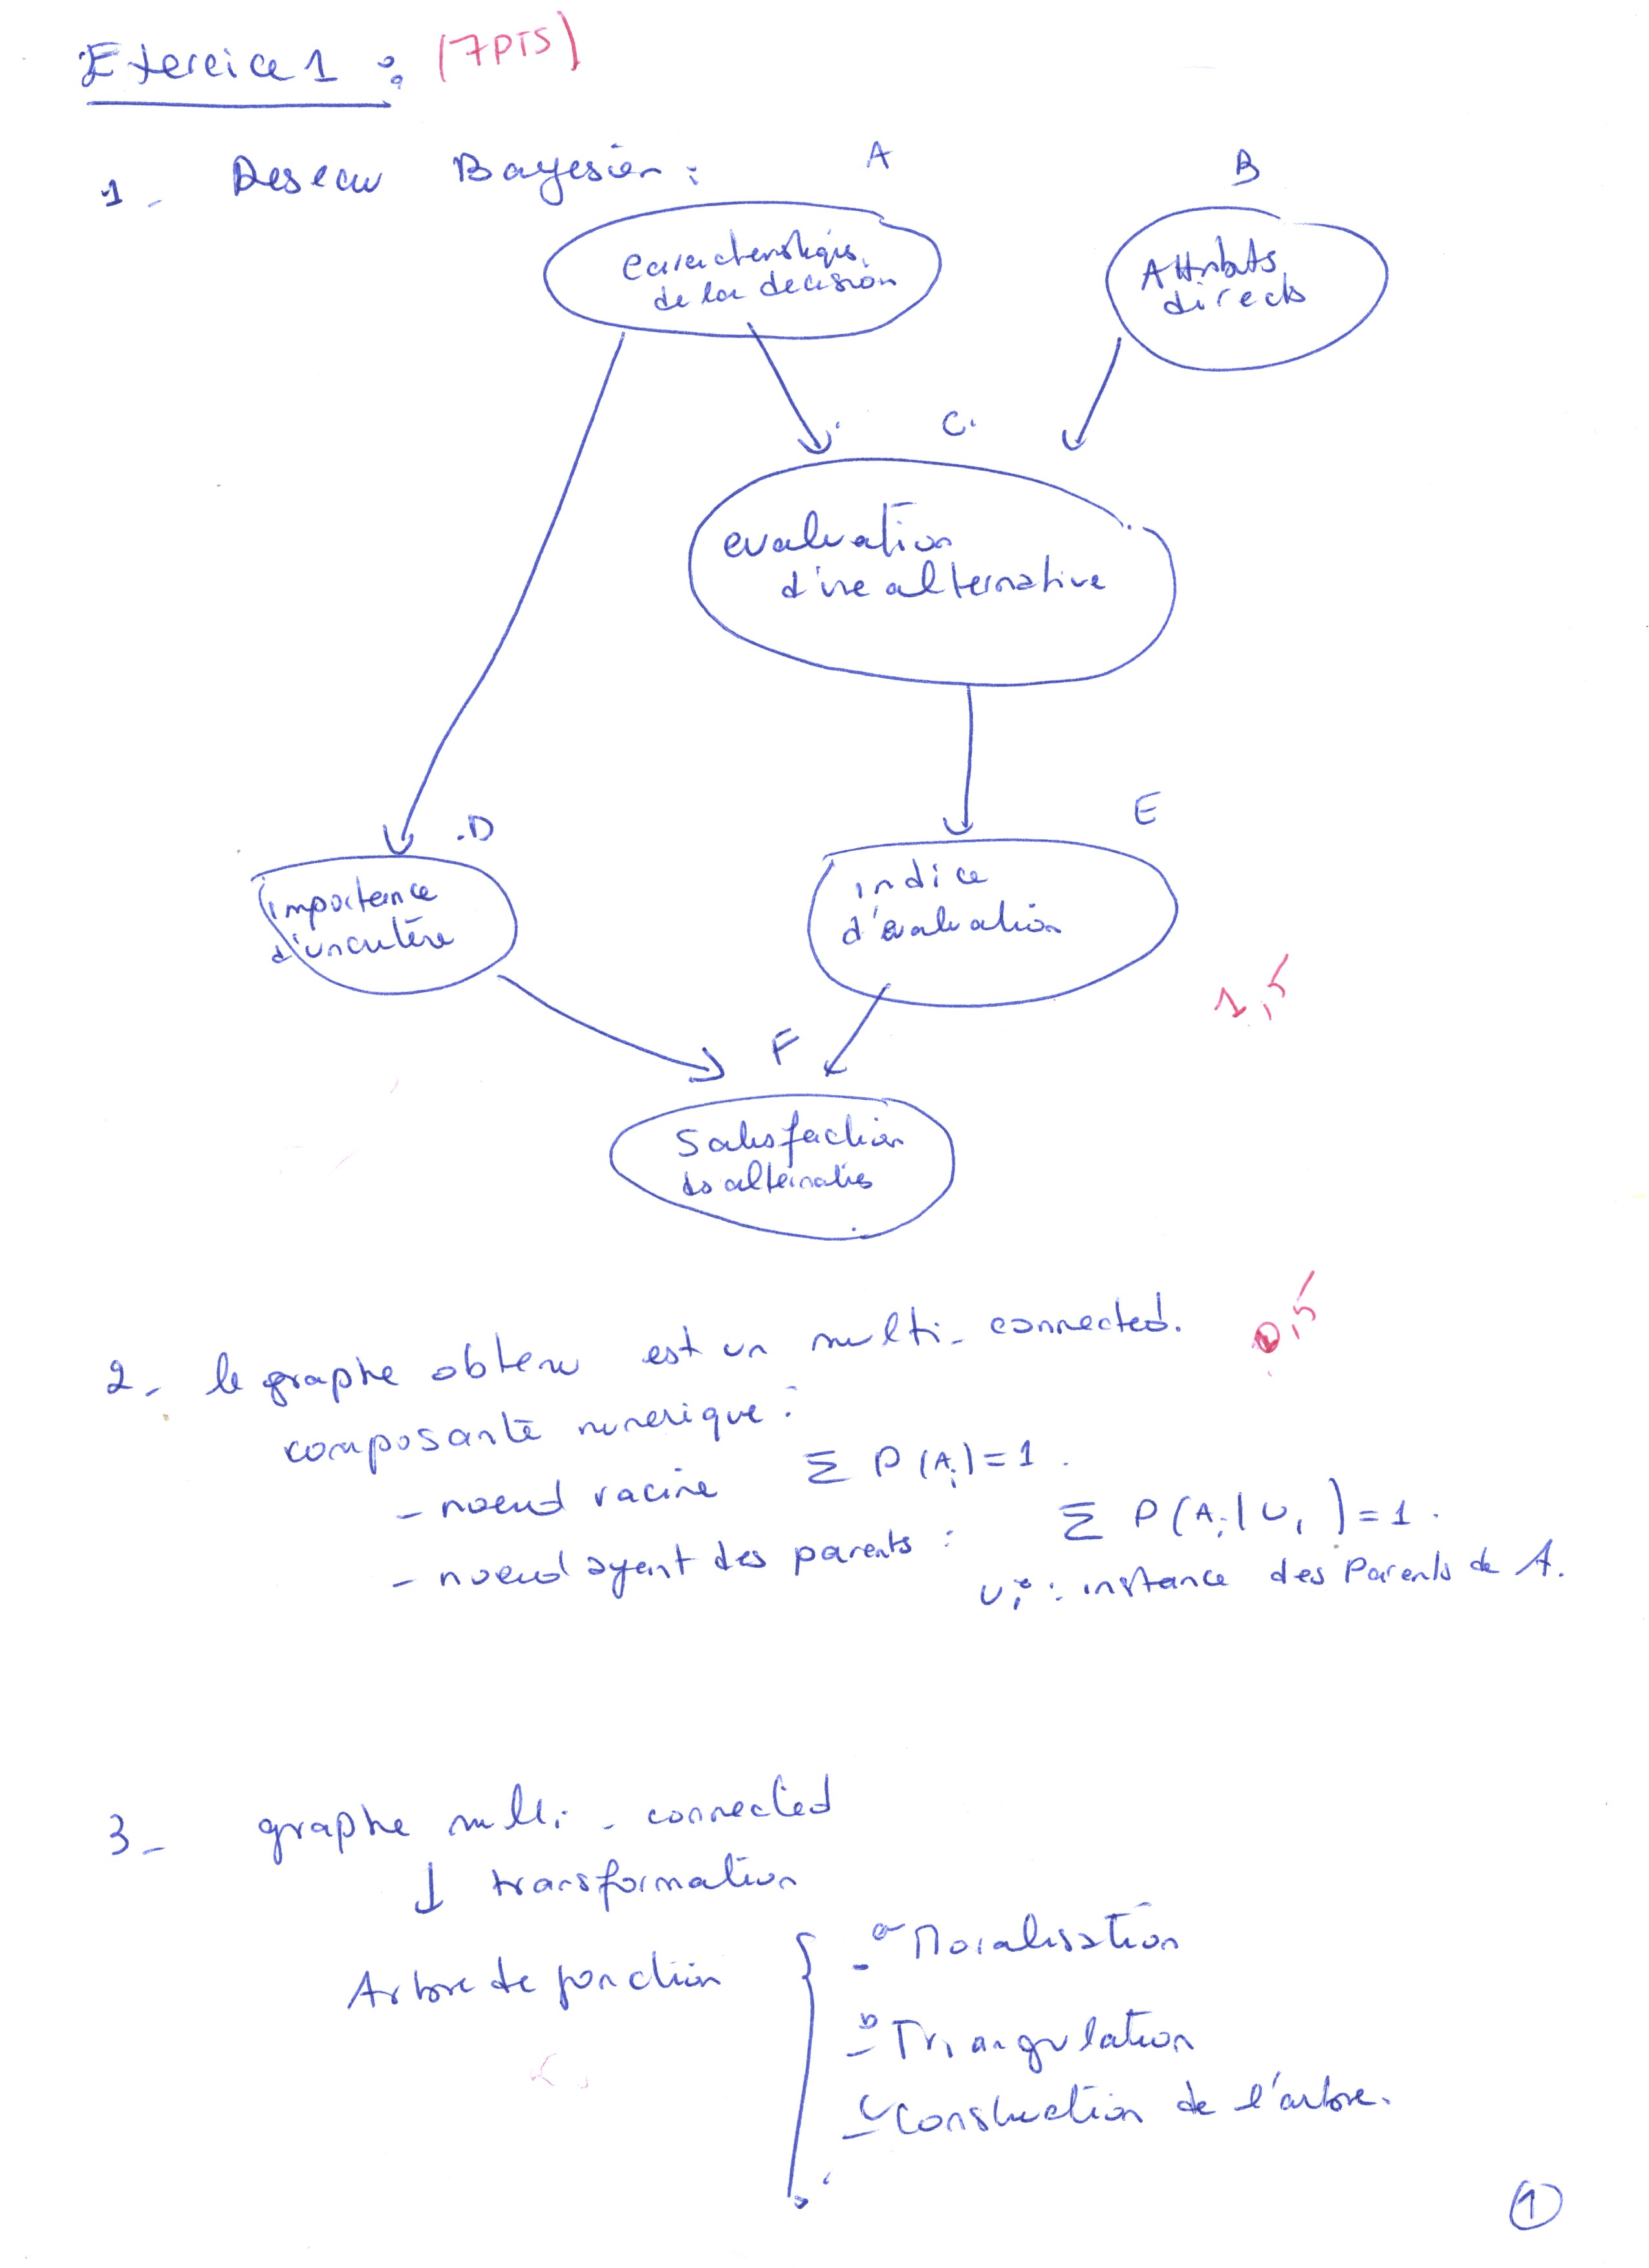 Exercice 1 : (7PTS)
1 - Reseau Bayesien :
A
B
caracteristiques
de la decision
Attributs
directs
C.
evaluation
d'une alternative
.D
E
importance
d'un critère
indice
d'évaluation
1,5
F
Satisfaction
des alternatives
2 - le graphe obtenu est un multi-connected. 0,5
composante numerique :
- noeud racine Σ P(Ai)=1.
- noeud ayant des parents : Σ P(Ai|Ui)=1.
Ui : instance des Parents de A.
3 - graphe multi-connected
↓ transformation
Arbre de jonction
a - Moralisation
b - Triangulation
c - Construction de l'arbre.
1